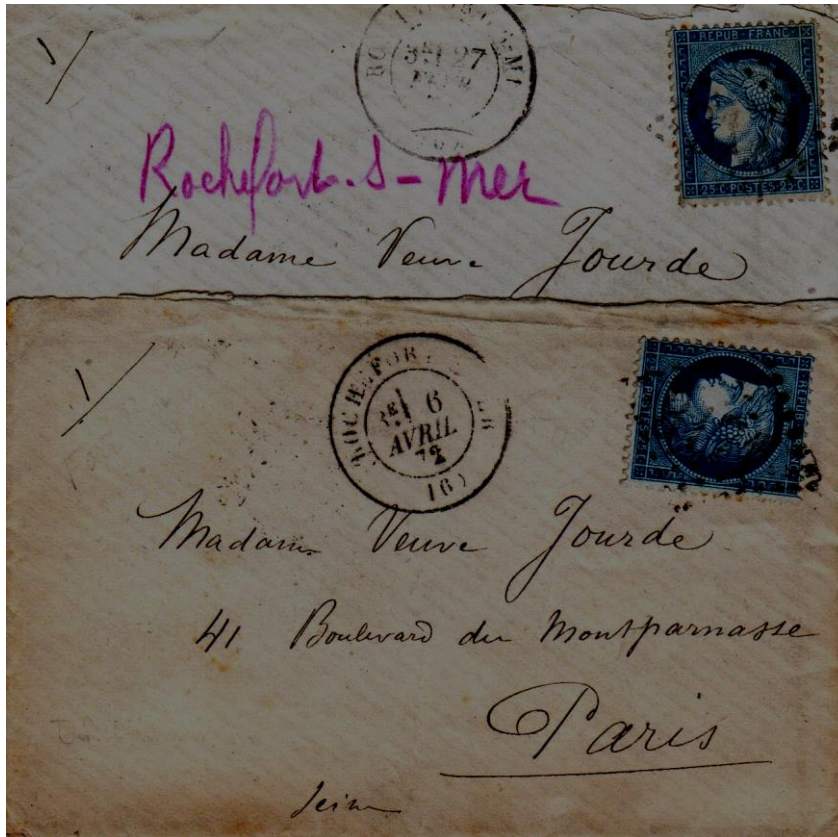 27
REPUB·FRANC
25 C·POSTES·25 C
Rochefort-S-Mer
Madame Veuve Jourde
1
6
AVRIL
72
(16)
REPUB
POSTES
Madame Veuve Jourde
41 Boulevard du Montparnasse
Paris
Seine